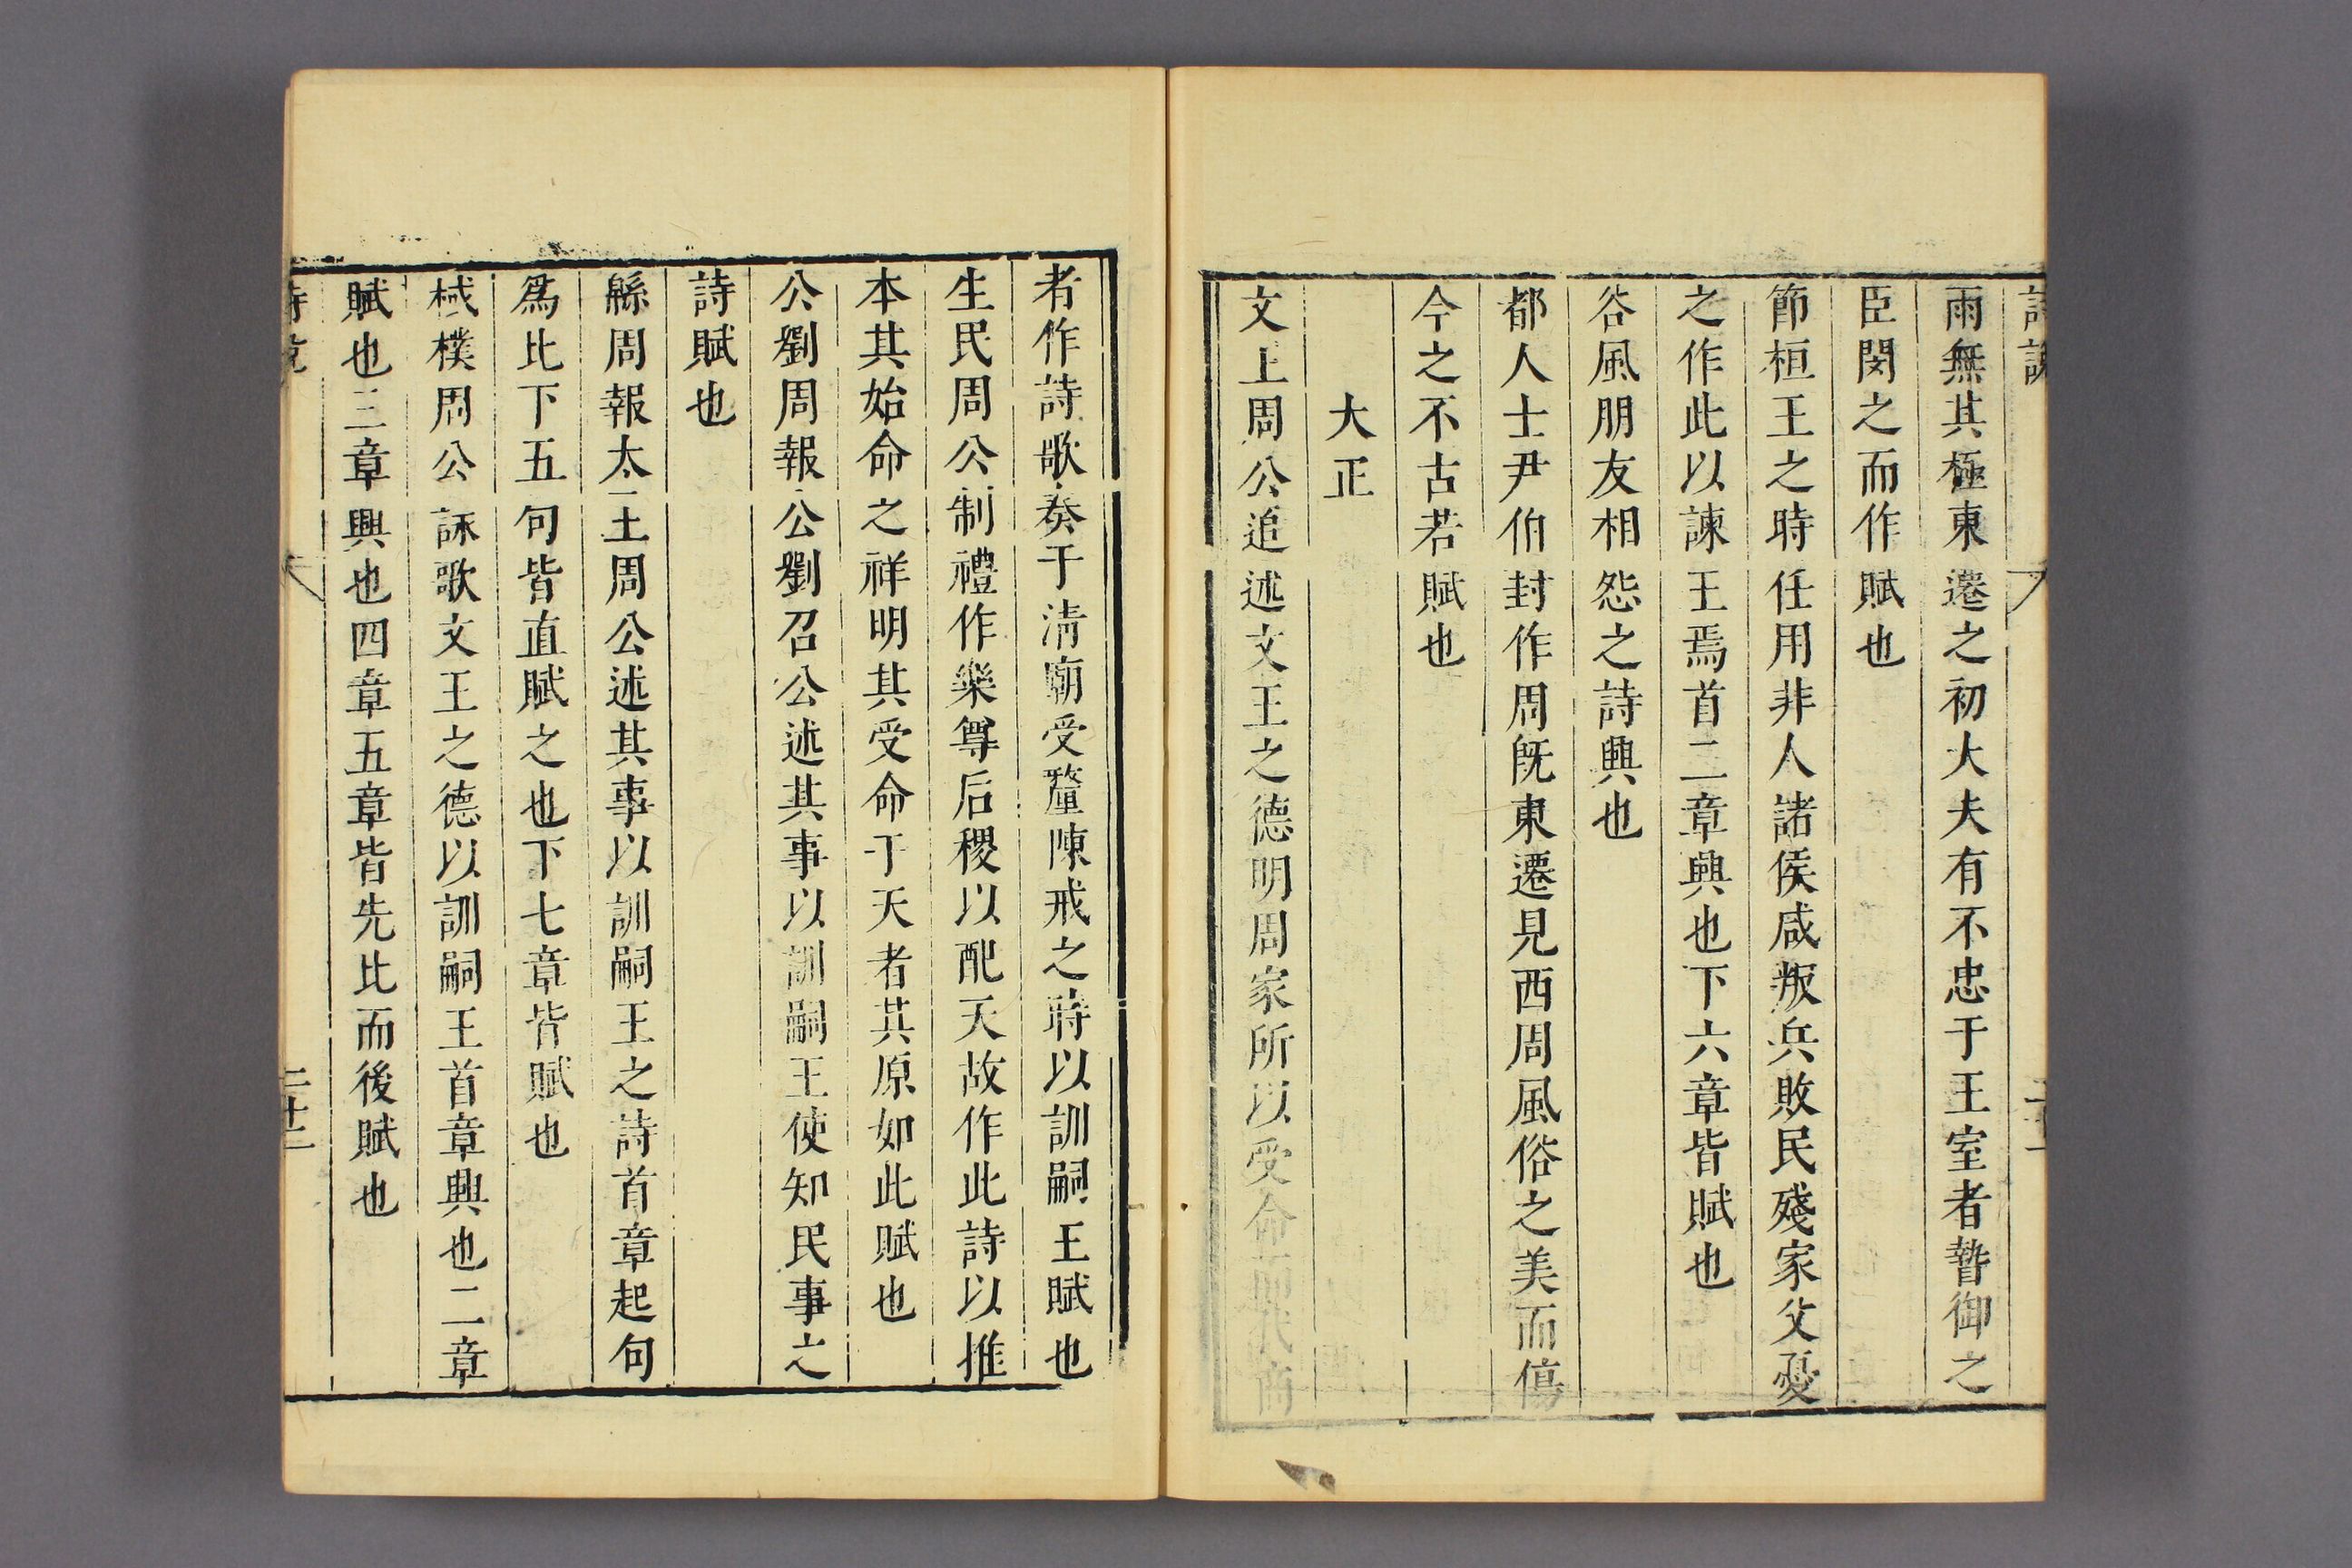 雨無其極東遷之初大夫有不忠于王室者暬御之
臣閔之而作賦也
節桓王之時任用非人諸侯咸叛兵敗民殘家父憂
之作此以諫王焉首二章興也下六章皆賦也
谷風朋友相怨之詩興也
都人士尹伯封作周旣東遷見西周風俗之美而傷
今之不古若賦也
大正
文上周公追述文王之德明周家所以受命而代商
者作詩歌奏于淸廟受釐陳戒之時以訓嗣王賦也
生民周公制禮作樂尊后稷以配天故作此詩以推
本其始命之祥明其受命于天者其原如此賦也
公劉周報公劉召公述其事以訓嗣王使知民事之
詩賦也
緜周報太王周公述其事以訓嗣王之詩首章起句
爲比下五句皆直賦之也下七章皆賦也
棫樸周公詠歌文王之德以訓嗣王首章興也二章
賦也三章興也四章五章皆先比而後賦也
二十二